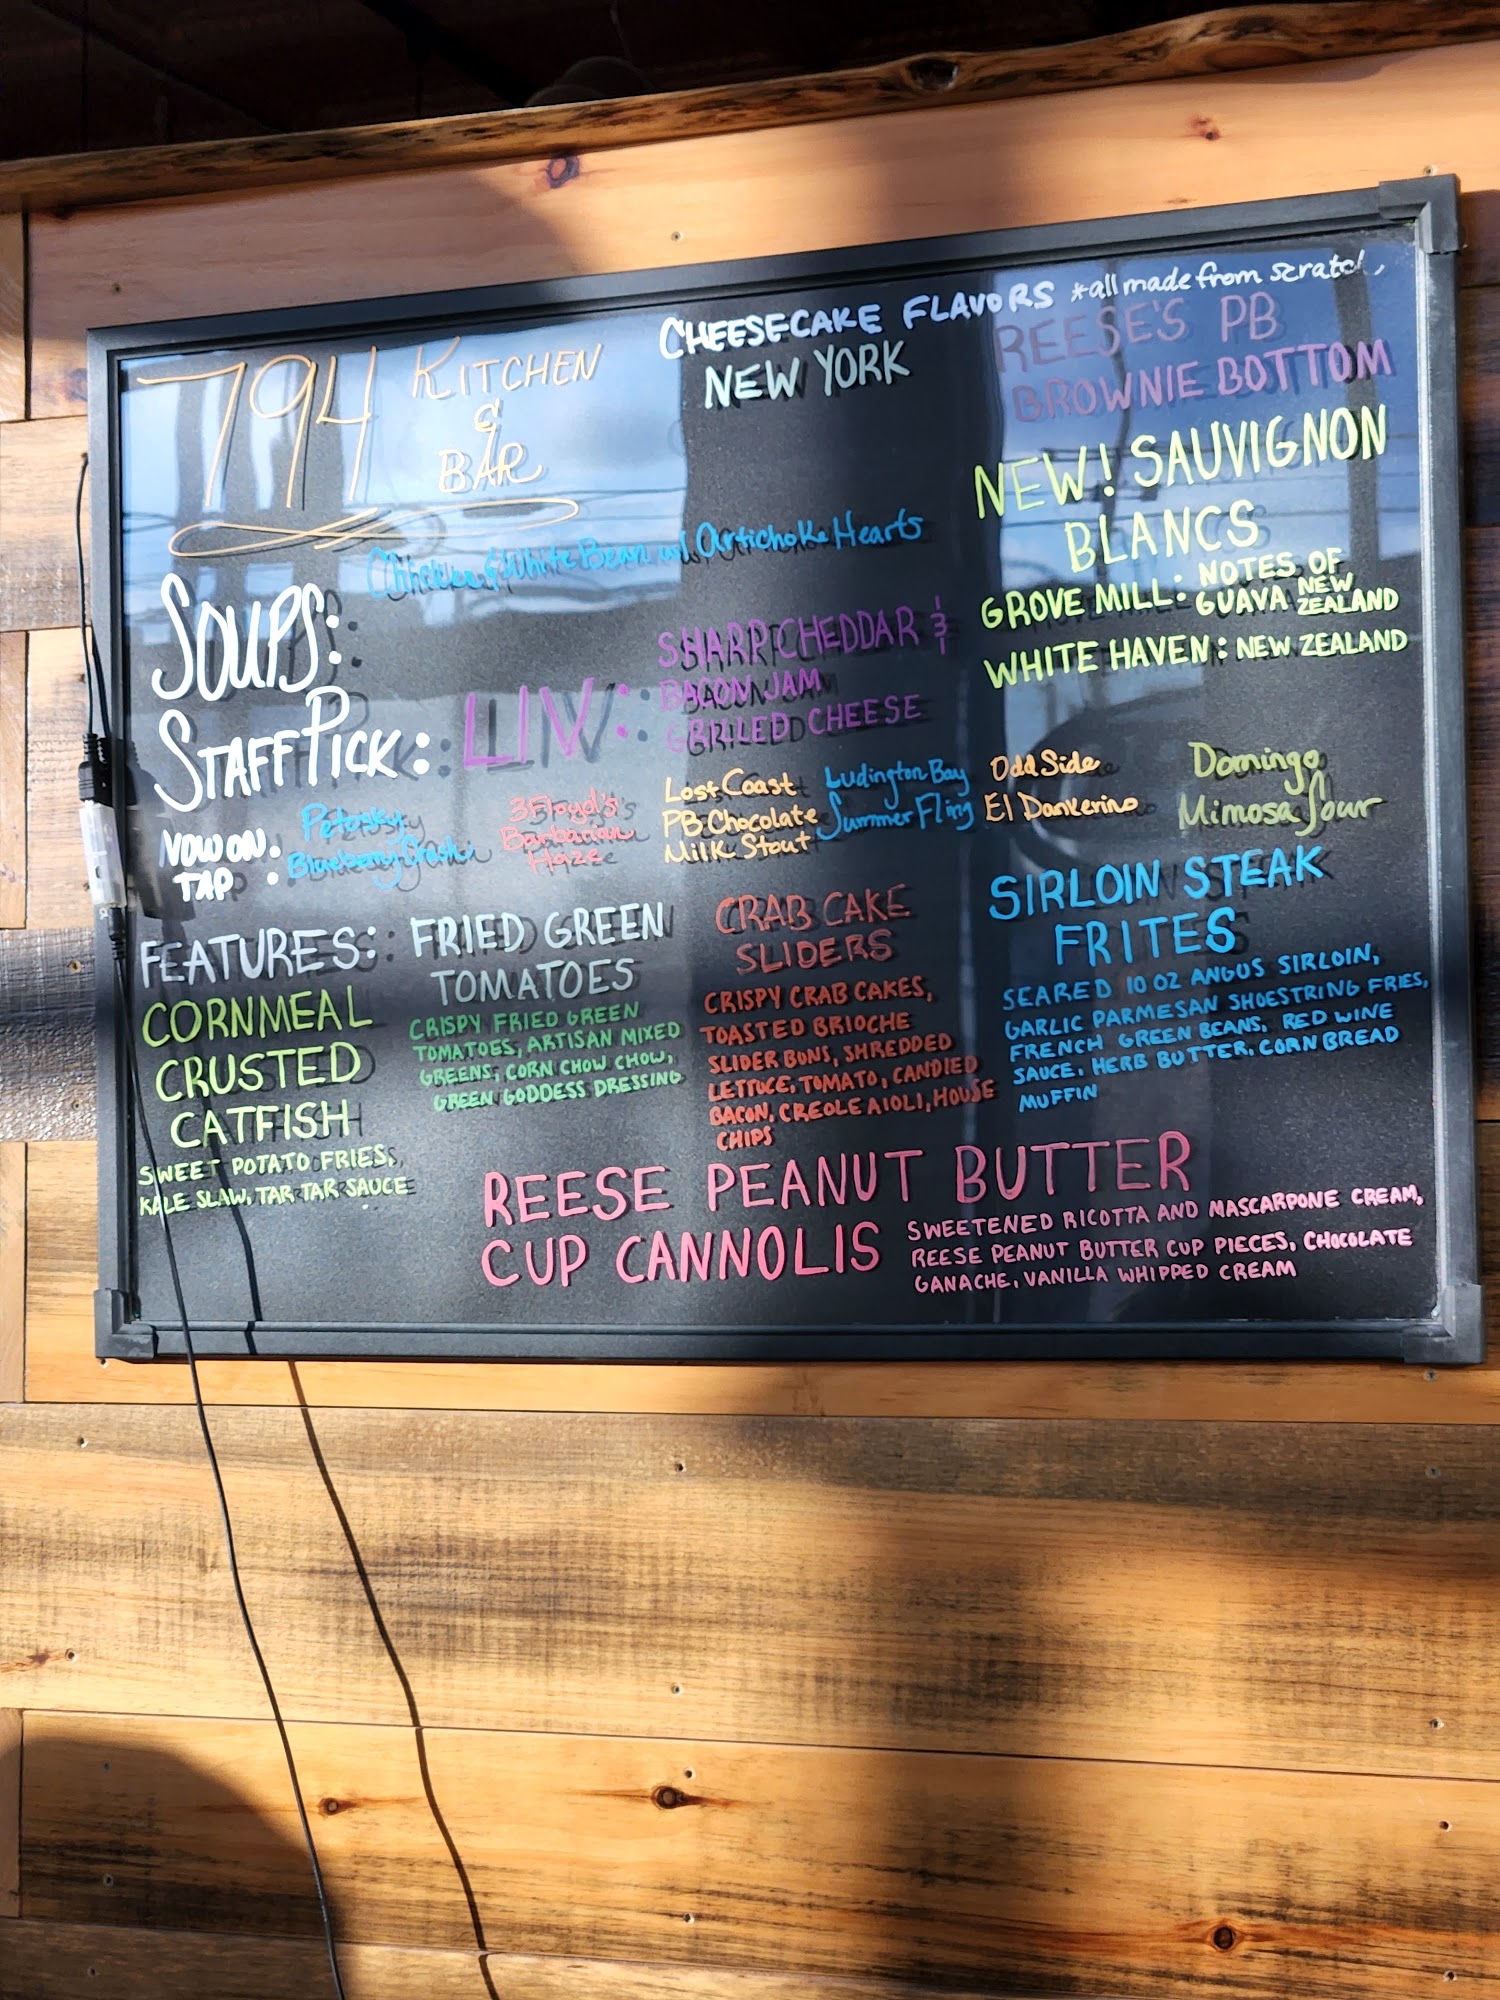 794 KITCHEN
&
BAR
CHEESECAKE FLAVORS *all made from scratch,
NEW YORK
REESE'S PB
BROWNIE BOTTOM
NEW! SAUVIGNON
BLANCS
GROVE MILL: NOTES OF
GUAVA NEW
ZEALAND
WHITE HAVEN: NEW ZEALAND
SOUPS:
Chicken & White Bean w/ Artichoke Hearts
STAFF PICK: LIV:
SHARP CHEDDAR &
BACON JAM
GRILLED CHEESE
NOW ON
TAP :
Petosky
Blueberry
3 Floyd's
Barbarian
Haze
Lost Coast
PB Chocolate
Milk Stout
Ludington Bay
Summer Fling
Odd Side
El Dankerino
Domingo
Mimosa Sour
FEATURES:
CORNMEAL
CRUSTED
CATFISH
SWEET POTATO FRIES,
KALE SLAW, TAR TAR SAUCE
FRIED GREEN
TOMATOES
CRISPY FRIED GREEN
TOMATOES, ARTISAN MIXED
GREENS, CORN CHOW CHOW,
GREEN GODDESS DRESSING
CRAB CAKE
SLIDERS
CRISPY CRAB CAKES,
TOASTED BRIOCHE
SLIDER BUNS, SHREDDED
LETTUCE, TOMATO, CANDIED
BACON, CREOLE AIOLI, HOUSE
CHIPS
SIRLOIN STEAK
FRITES
SEARED 10 OZ ANGUS SIRLOIN,
GARLIC PARMESAN SHOESTRING FRIES,
FRENCH GREEN BEANS, RED WINE
SAUCE, HERB BUTTER, CORN BREAD
MUFFIN
REESE PEANUT BUTTER
CUP CANNOLIS
SWEETENED RICOTTA AND MASCARPONE CREAM,
REESE PEANUT BUTTER CUP PIECES, CHOCOLATE
GANACHE, VANILLA WHIPPED CREAM